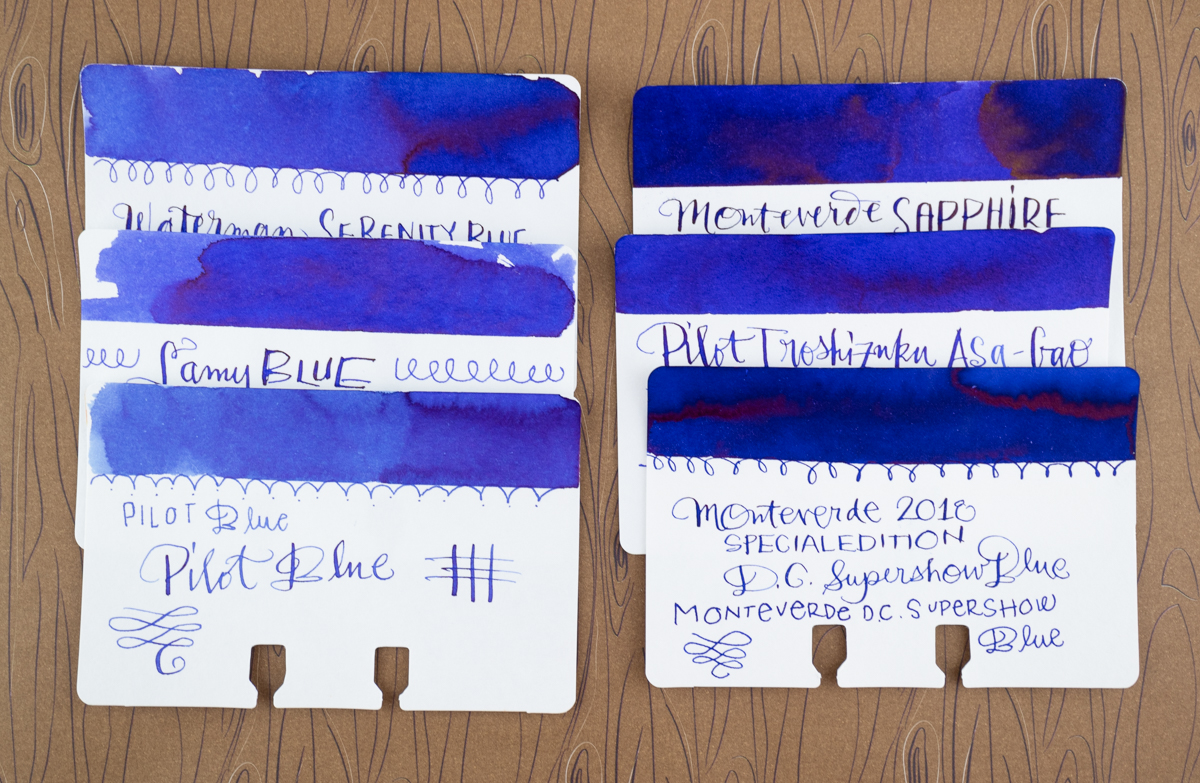 Waterman SERENITY BLUE
Lamy BLUE
PILOT Blue
Pilot Blue
Monteverde SAPPHIRE
Pilot Iroshizuku Asa-Gao
Monteverde 2018
SPECIAL EDITION
D.C. Supershow Blue
MONTEVERDE D.C. SUPERSHOW
Blue